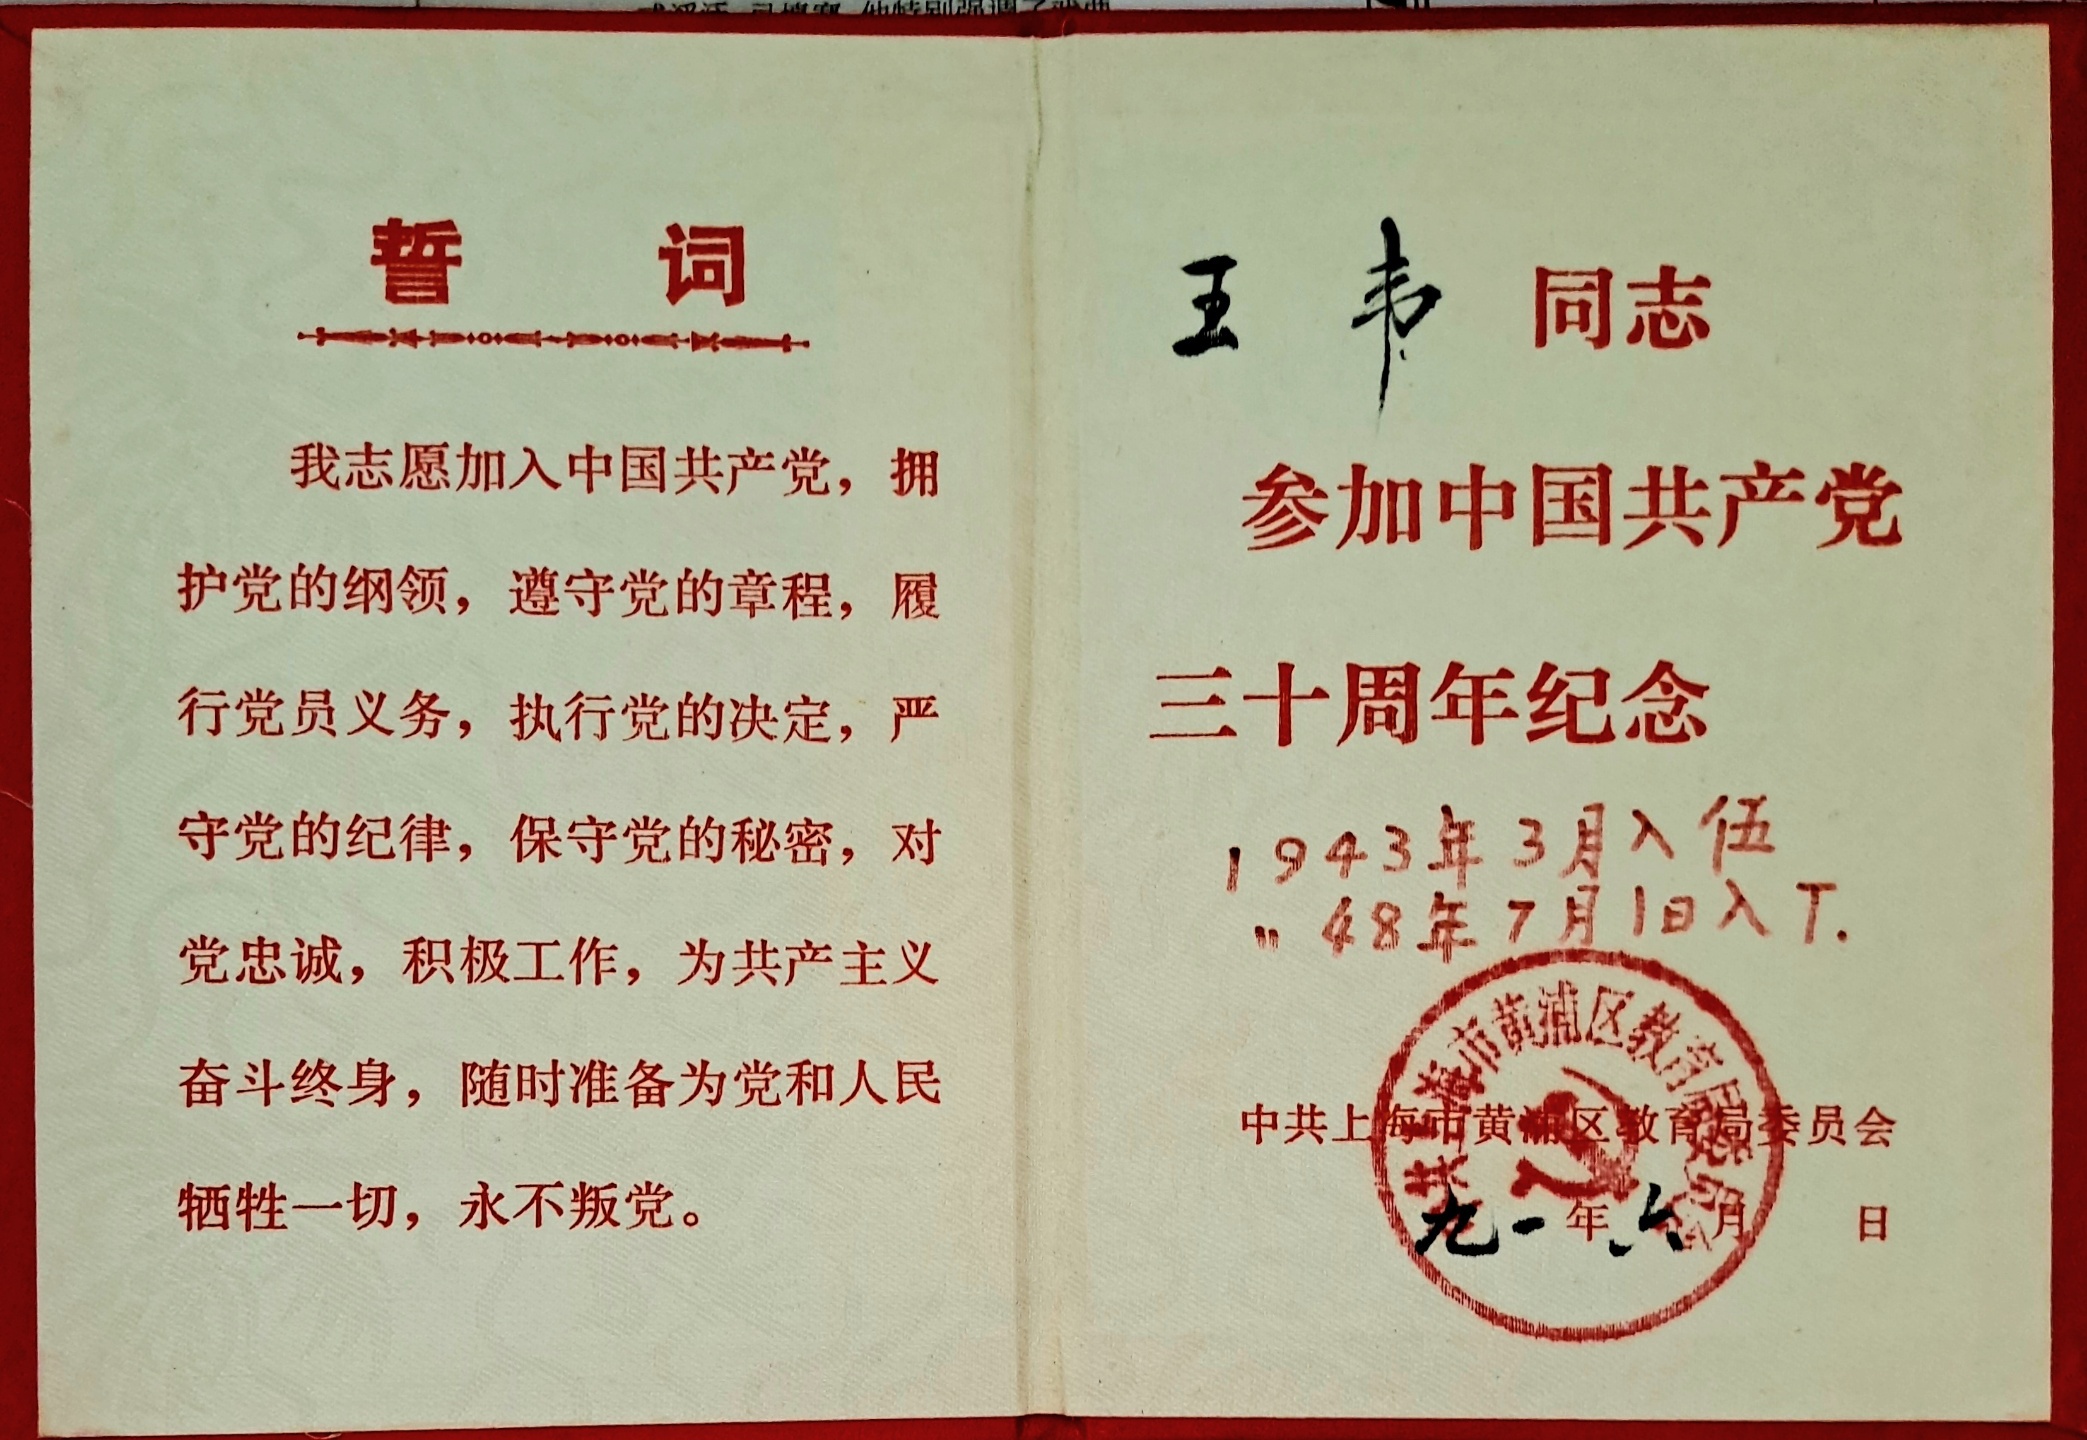 誓词
我志愿加入中国共产党，拥
护党的纲领，遵守党的章程，履
行党员义务，执行党的决定，严
守党的纪律，保守党的秘密，对
党忠诚，积极工作，为共产主义
奋斗终身，随时准备为党和人民
牺牲一切，永不叛党。
王韦同志
参加中国共产党
三十周年纪念
1943年3月入伍
〃48年7月1日入T.
中共上海市黄浦区教育局委员会
九一年六月 日